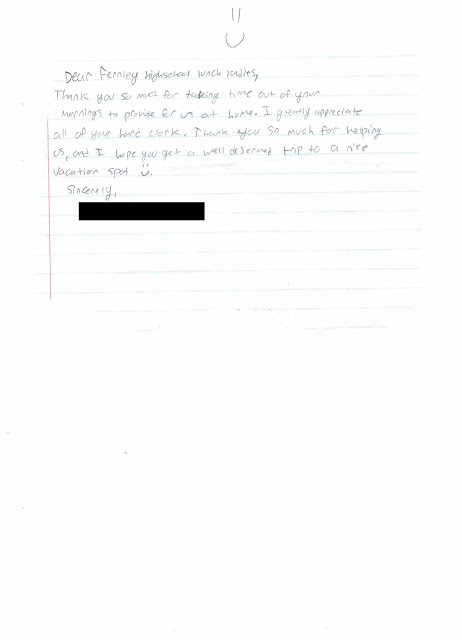 Dear Fernley highschool lunch ladies,
Thank you so much for taking time out of your
mornings to provide for us at home. I greatly appreciate
all of your hard work. Thank you so much for helping
us, and I hope you get a well deserved trip to a nice
vacation spot :).
Sincerely,